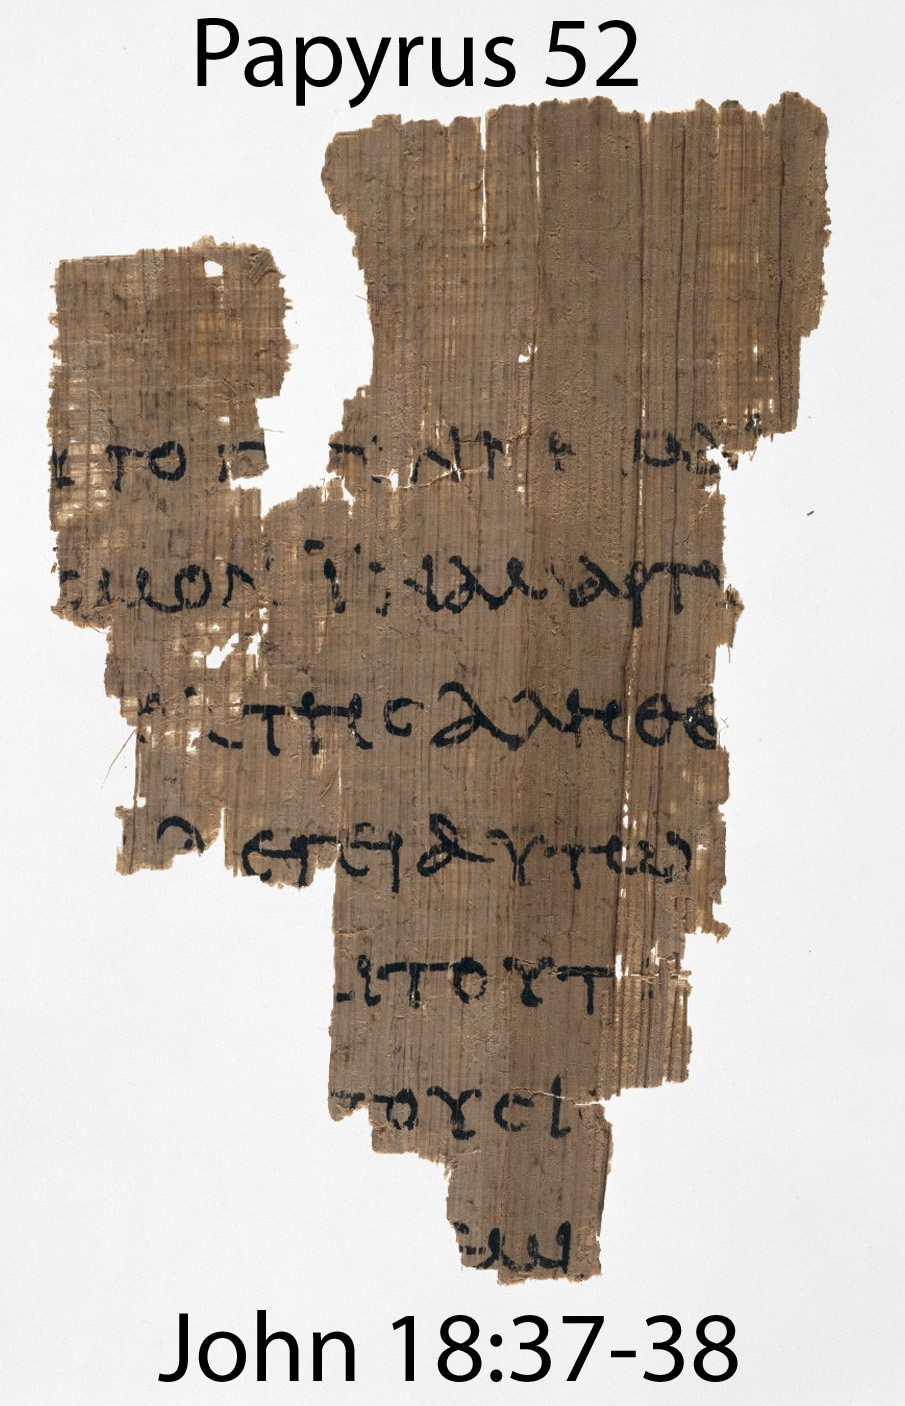 Papyrus 52
ΤΟ Γ
ΜΟΝ ΙΝΑ ΜΑΡΤ
ΤΗΣ ΑΛΗΘΕ
ΛΕΓΕΙ ΑΥΤΩ
ΙΤΟΥΤ
ΤΟΥΣΙ
ΜΙ
John 18:37-38